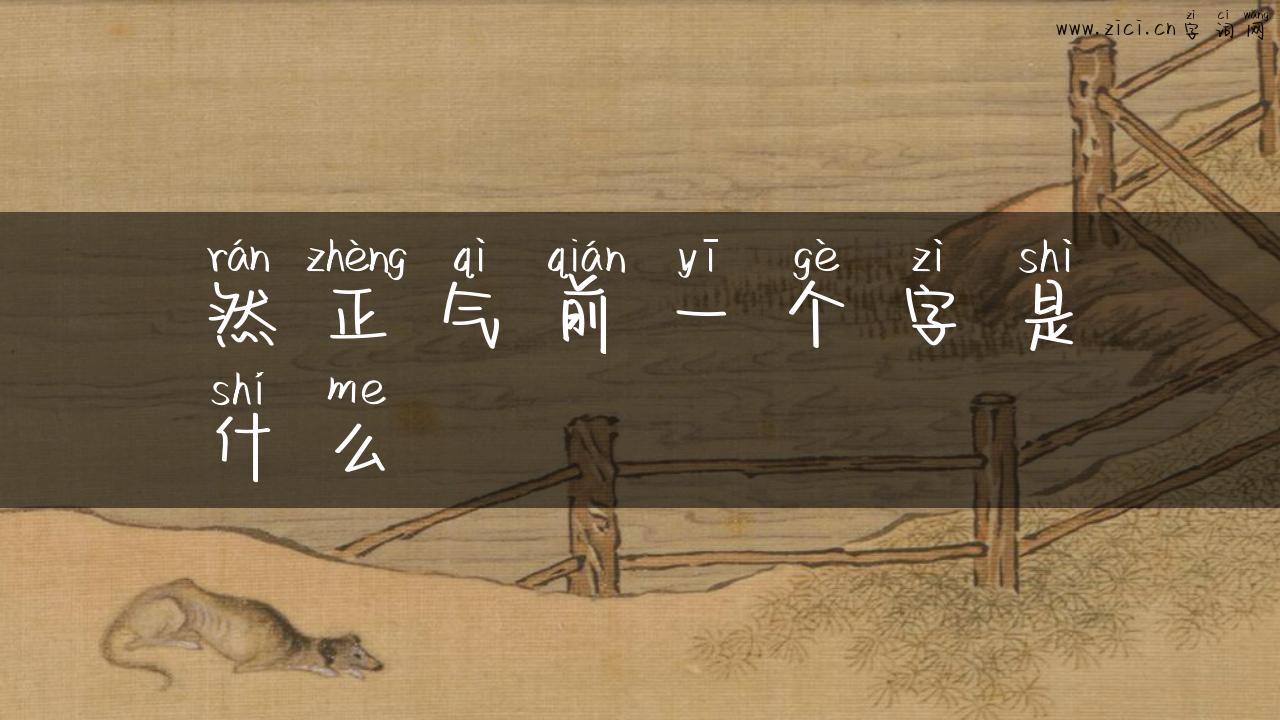 zì cí wǎng
www.zici.cn 字词网
rán zhèng qì qián yī gè zì shì
然正气前一个字是
shí me
什么